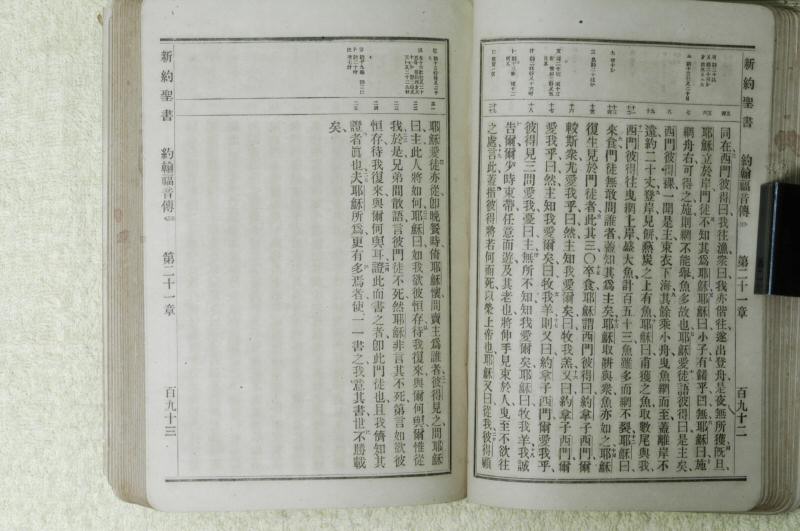 新約聖書 約翰福音傳 第二十一章 百九十二
同在西門彼得曰我往漁衆曰我亦偕往遂出登舟是夜無所獲旣旦
耶穌立於岸門徒不知其爲耶穌耶穌曰小子有餚乎曰無耶穌曰施
網舟右可得之施則網不能舉魚多故也耶穌愛徒語彼得曰是主矣
西門彼得裸一聞是主衣下海其餘乘小舟曳魚網而至蓋離岸不
遠約二十丈登岸見餅爇炭之上有魚耶穌曰甫獲之魚取數尾與我
西門彼得往曳網上岸盛大魚計百五十三魚雖多而網不裂耶穌曰
來食門徒無敢問誰者蓋知其爲主矣耶穌取餅與衆魚亦如之耶穌
復生見於門徒者此其三〇卒食耶穌謂西門彼得曰約拿子西門爾
較斯衆尤愛我乎曰然主知我愛爾矣曰牧我羔又曰約拿子西門爾
愛我乎曰然主知我愛爾矣曰牧我羊則又曰約拿子西門爾愛我乎
彼得見三問愛我憂曰主無所不知知我愛爾矣耶穌曰牧我羊我誠
告爾爾少時束帶任意而遊及其老也將伸手見束於人曳至不欲往
之處言此蓋指彼得將若何而死以榮上帝也耶穌又曰從我彼得顧
耶穌愛徒亦從卽晚餐時倚耶穌懷問賣主爲誰者彼得見之問耶穌
曰主此人將如何耶穌曰如我欲彼恒存待我復來與爾何與爾惟從
我於是兄弟間散語言彼門徒不死然耶穌非言其不死第言如欲彼
恒存待我復來與爾何與耳證此而書之者卽此門徒也且我儕知其
證者眞也夫耶穌所爲更有多焉者使一一書之我意其書世不勝載
矣
新約聖書 約翰福音傳 第二十一章 百九十三